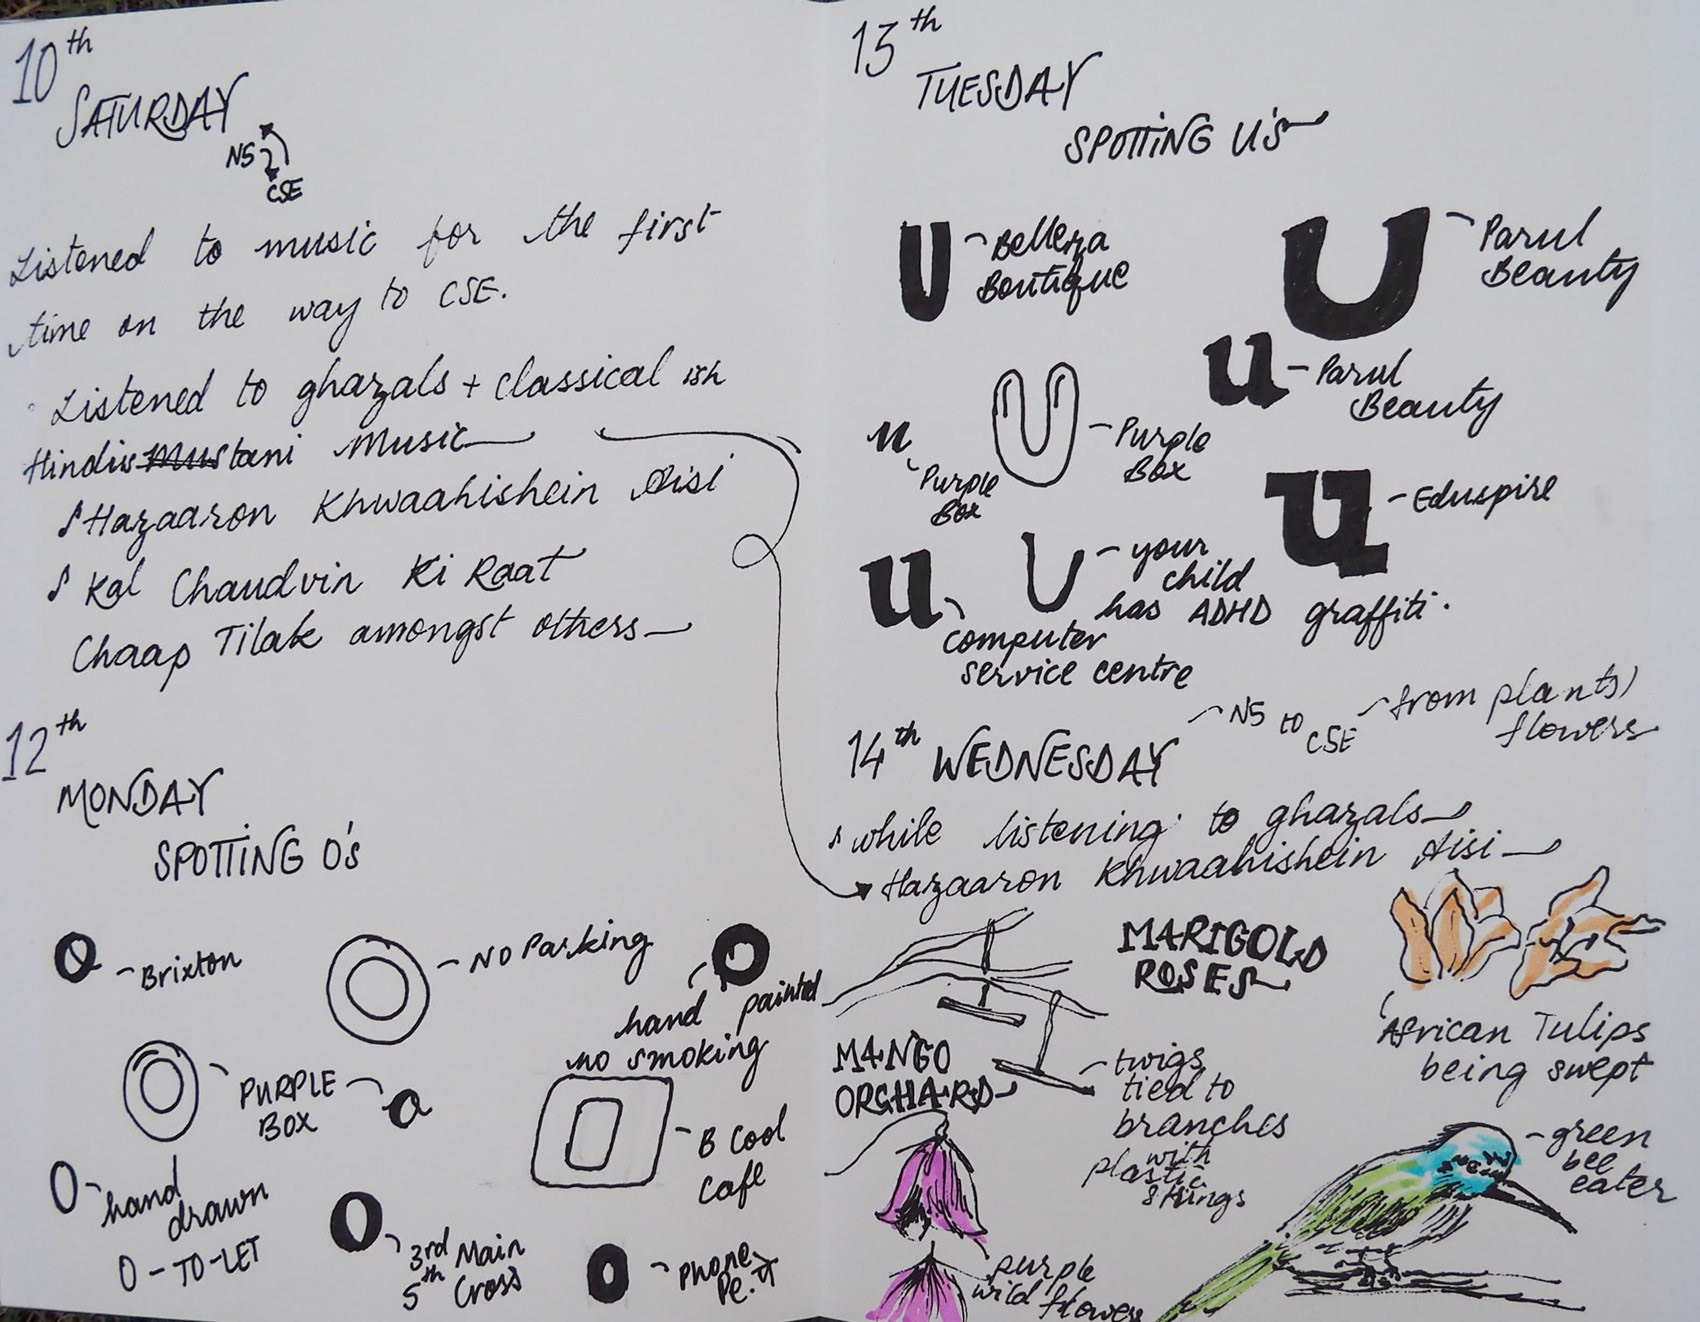 10th
SATURDAY
NS
CSE
Listened to music for the first
time on the way to CSE.
Listened to ghazals + classical ish
Hindustani Music
Hazaaron Khwaahishein Aisi
Kal Chaudvin Ki Raat
Chaap Tilak amongst others
12th
MONDAY
SPOTTING O's
O - Brixton
O - No Parking
O
hand painted
no smoking
O - PURPLE
BOX
a
O - B Cool
Cafe
O - hand
drawn
O - TO-LET
O
3rd Main
5th Cross
O - Phone
Pe.
13th
TUESDAY
SPOTTING U'S
U - Belleza
Boutique
U - Parul
Beauty
u - Parul
Beauty
u
Purple
Box
U - Purple
Box
u - Eduspire
u
computer
service centre
U - your
child
has ADHD graffiti.
14th WEDNESDAY
NS to CSE
from plants/
flowers
while listening to ghazals
Hazaaron Khwaahishein Aisi
MARIGOLD
ROSES
African Tulips
being swept
MANGO
ORCHARD
twigs
tied to
branches
with
plastic
strings
green
bee
eater
purple
wild flowers